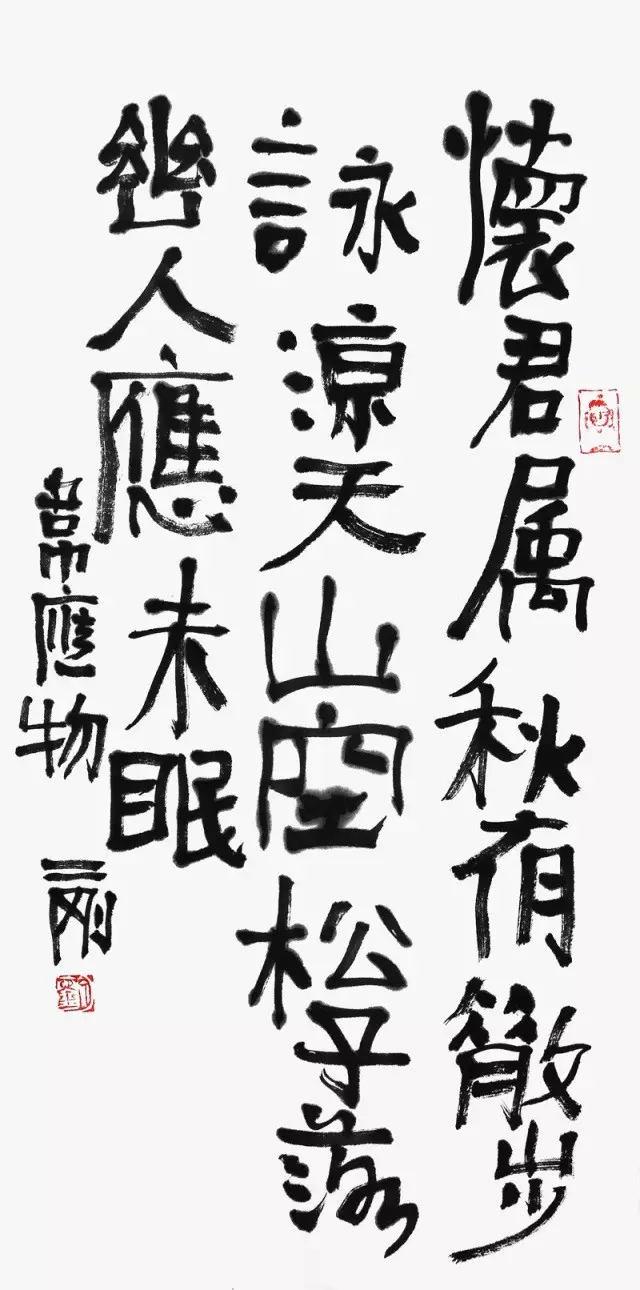 懷君属秋夜散步
詠涼天山空松子落
幽人應未眠
韋應物 二剛